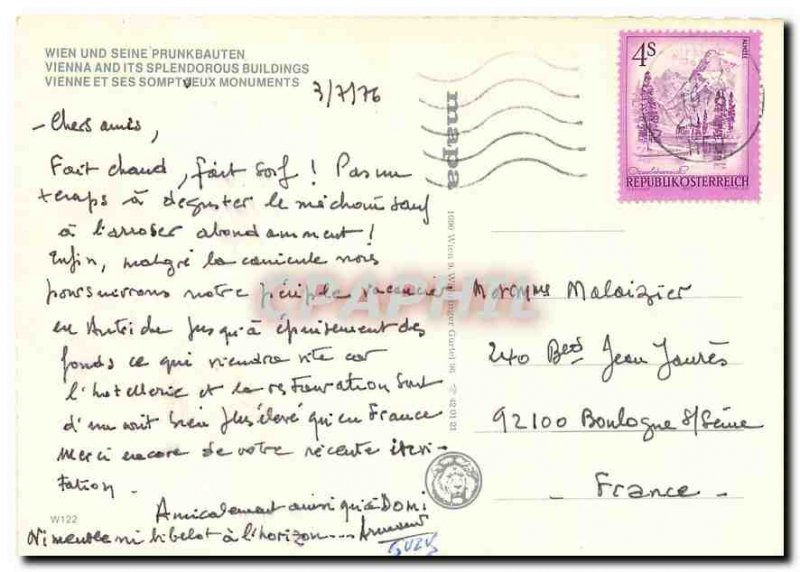 WIEN UND SEINE PRUNKBAUTEN
VIENNA AND ITS SPLENDOROUS BUILDINGS
VIENNE ET SES SOMPTUEUX MONUMENTS
3/7/76
- Chers amis,
Fait chaud, fait soif ! Pas un
temps à déguster le méchoui sauf
à l'arroser abondamment !
Enfin, malgré la canicule nous
poursuivrons notre périple vacancier
en Autriche jusqu'à épuisement des
fonds ce qui viendra vite car
l'hotellerie et la restauration sont
d'un coût bien plus élevé qu'en France
Merci encore de votre récente invi-
tation.
Amicalement ainsi qu'à Domi
Ni meuble ni bibelot à l'horizon ...
SUZY
W122
mapa
1090 Wien 9, Währinger Gürtel 96 ☎ 42 01 21
4S
REPUBLIK ÖSTERREICH
Malaizier
240 Bed Jean Jaurès
92100 Boulogne s/Seine
- France -
CPAPHIL